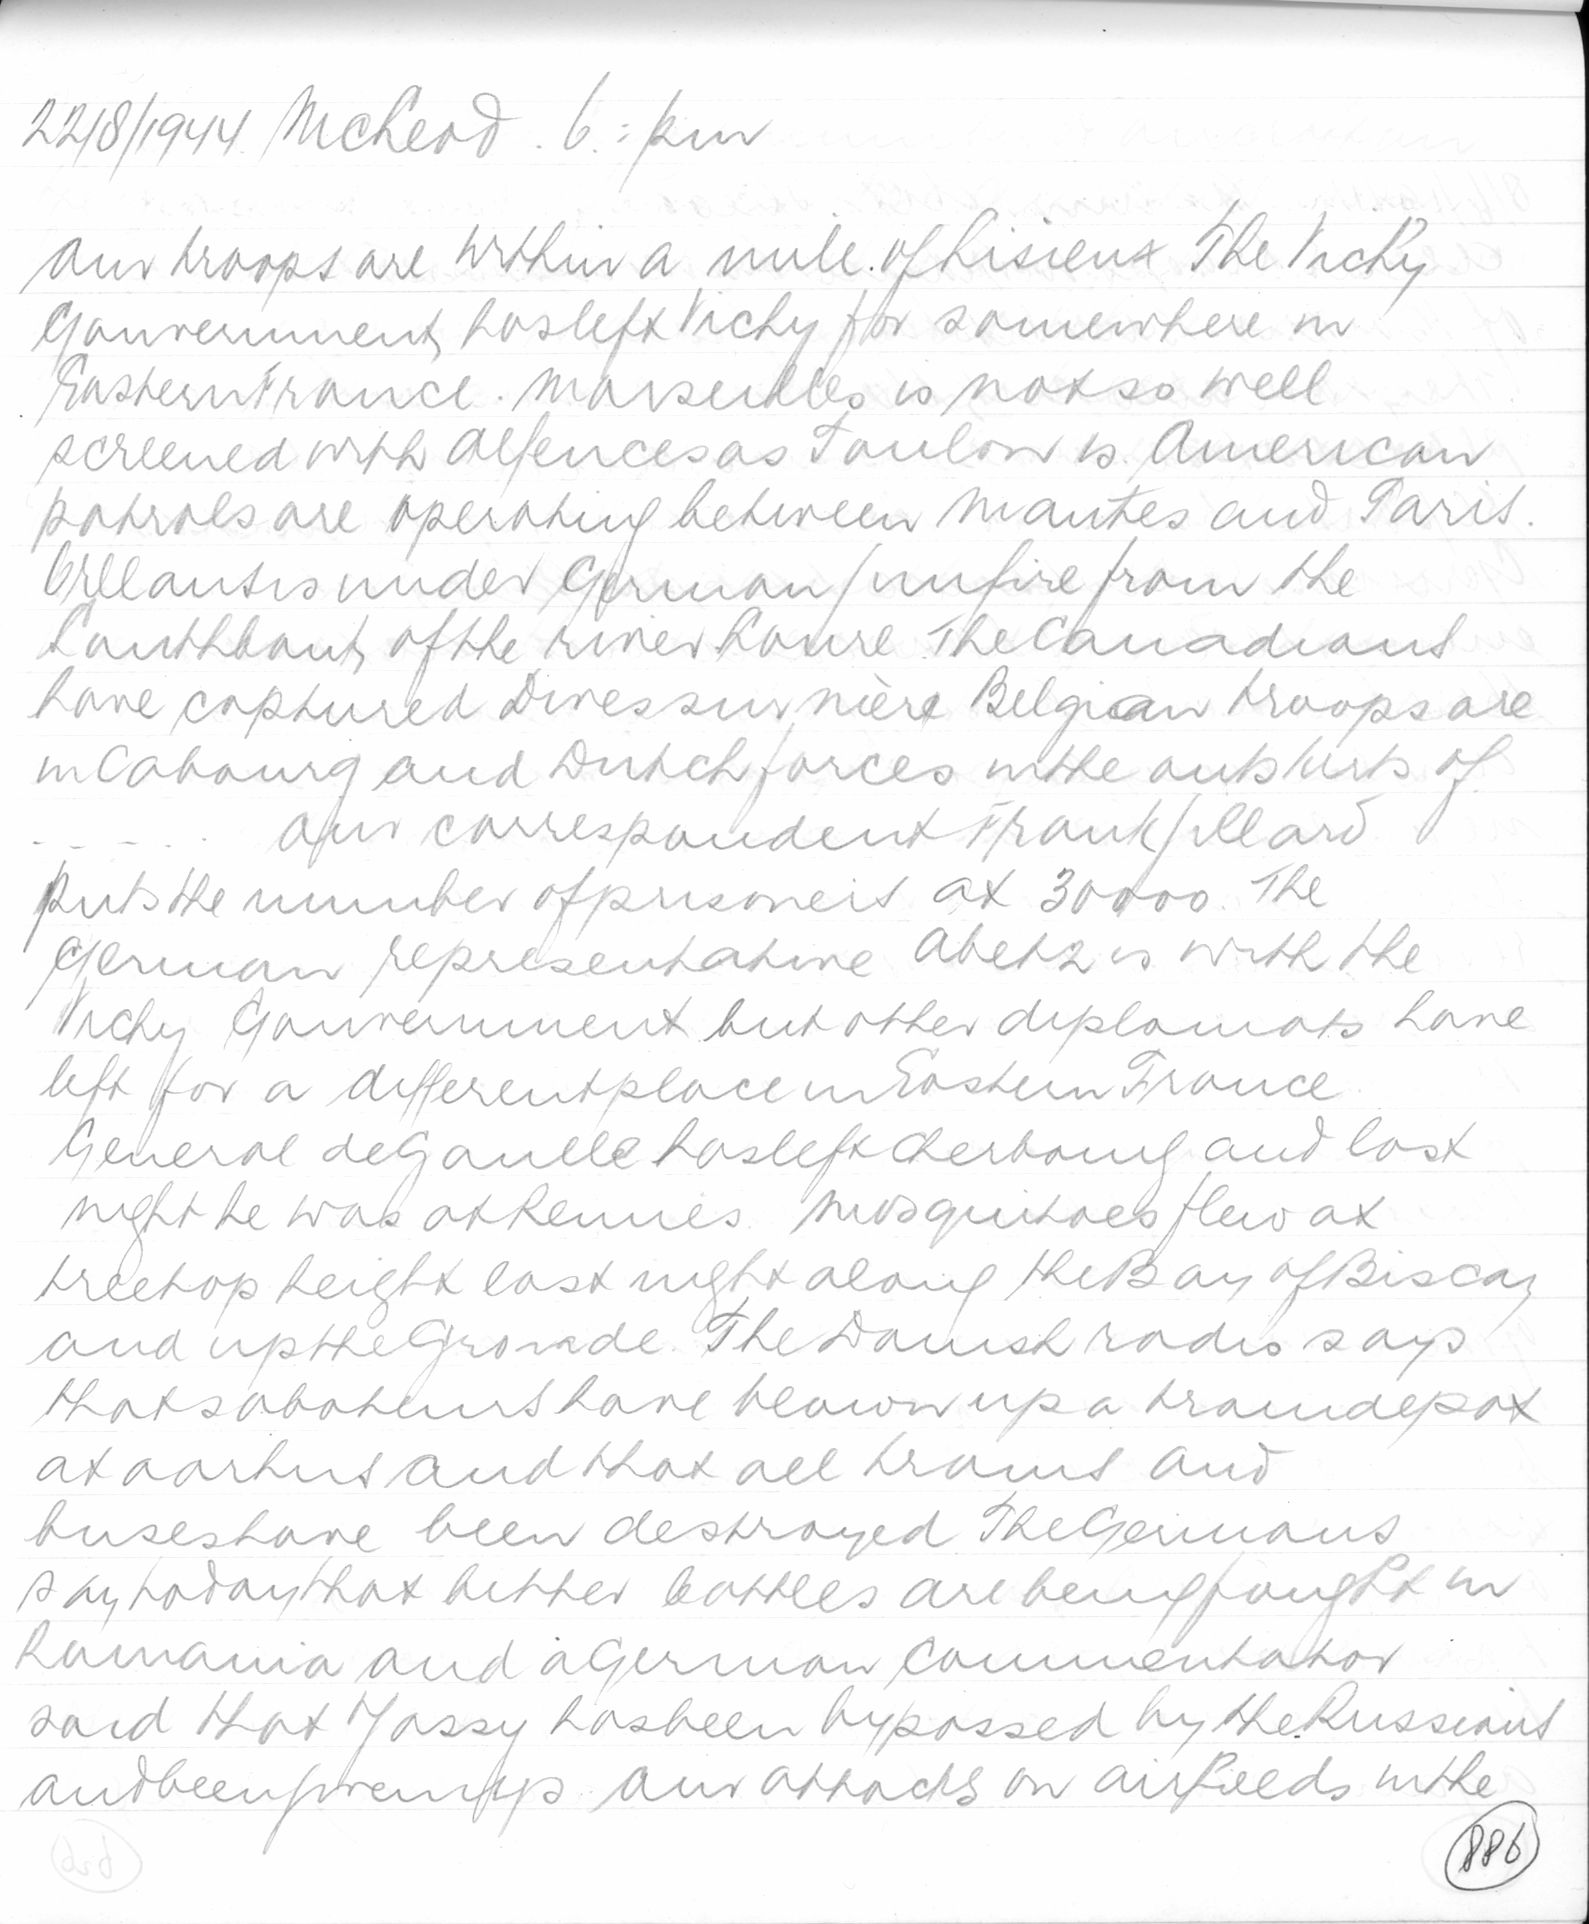 22/8/1944. McLeod. 6.: pm
Our troops are within a mile of Lisieux The Vichy
Gouvernment has left Vichy for somewhere in
Eastern France. Marseilles is not so well
screened with defences as Toulon is. American
patrols are operating between Mantes and Paris.
Orlleans is under German gunfire from the
Southbank of the river Loire. The Canadians
have captured Dives sur mère Belgian troops are
in Cabourg and Dutch forces in the outskirts of
----- Our correspondent Frank Gillard
puts the number of prisoners at 30000. The
German representative Abetz is with the
Vichy Gouvernment but other diplomats have
left for a different place in Eastern France
General de Gaulle has left Cherbourg and last
night he was at Rennes. Mosquitoes flew at
treetop height last night along the Bay of Biscay
and up the Gironde. The Danish radio says
that saboteurs have blown up a tramdepot
at Aarhus and that all trams and
buses have been destroyed The Germans
say today that bitter battles are being fought in
Romania and a German commentator
said that Yassy has been bypassed by the Russians
and been given up. Our attacks on airfields in the
886